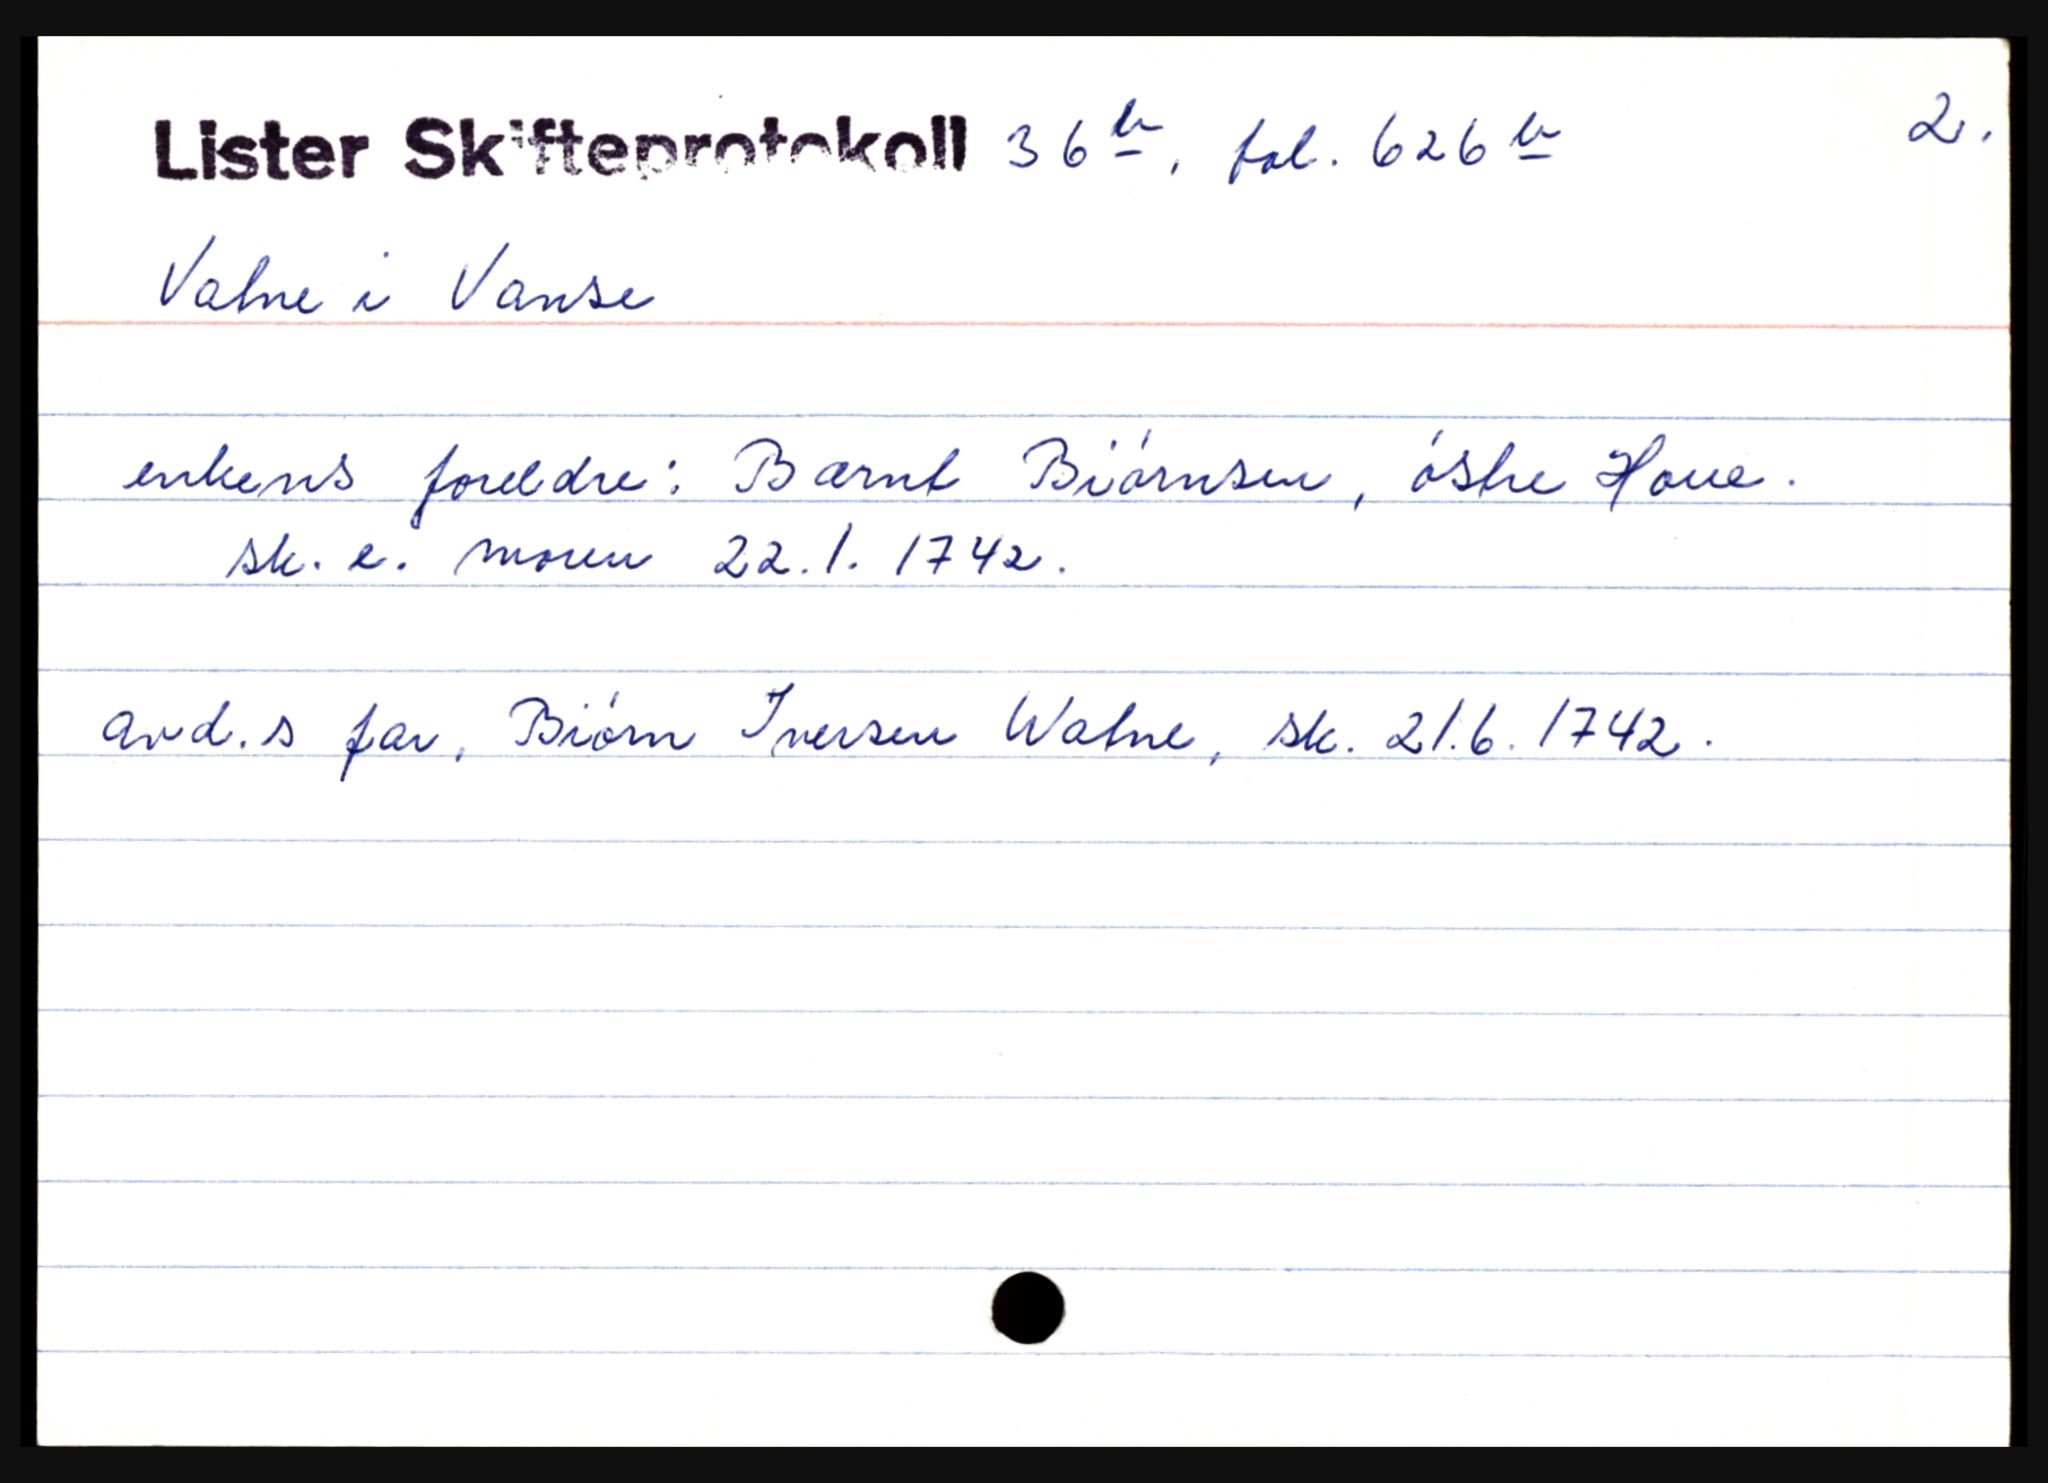 Lister Skifteprotokoll 36 b, fol. 626 b 2.
Vatne i Vanse
enkens foreldre: Bærnt Biørnsen, østre Houe.
sk. e. moren 22.1. 1742.
avd.s far, Biørn Iversen Watne, sk. 21.6. 1742.